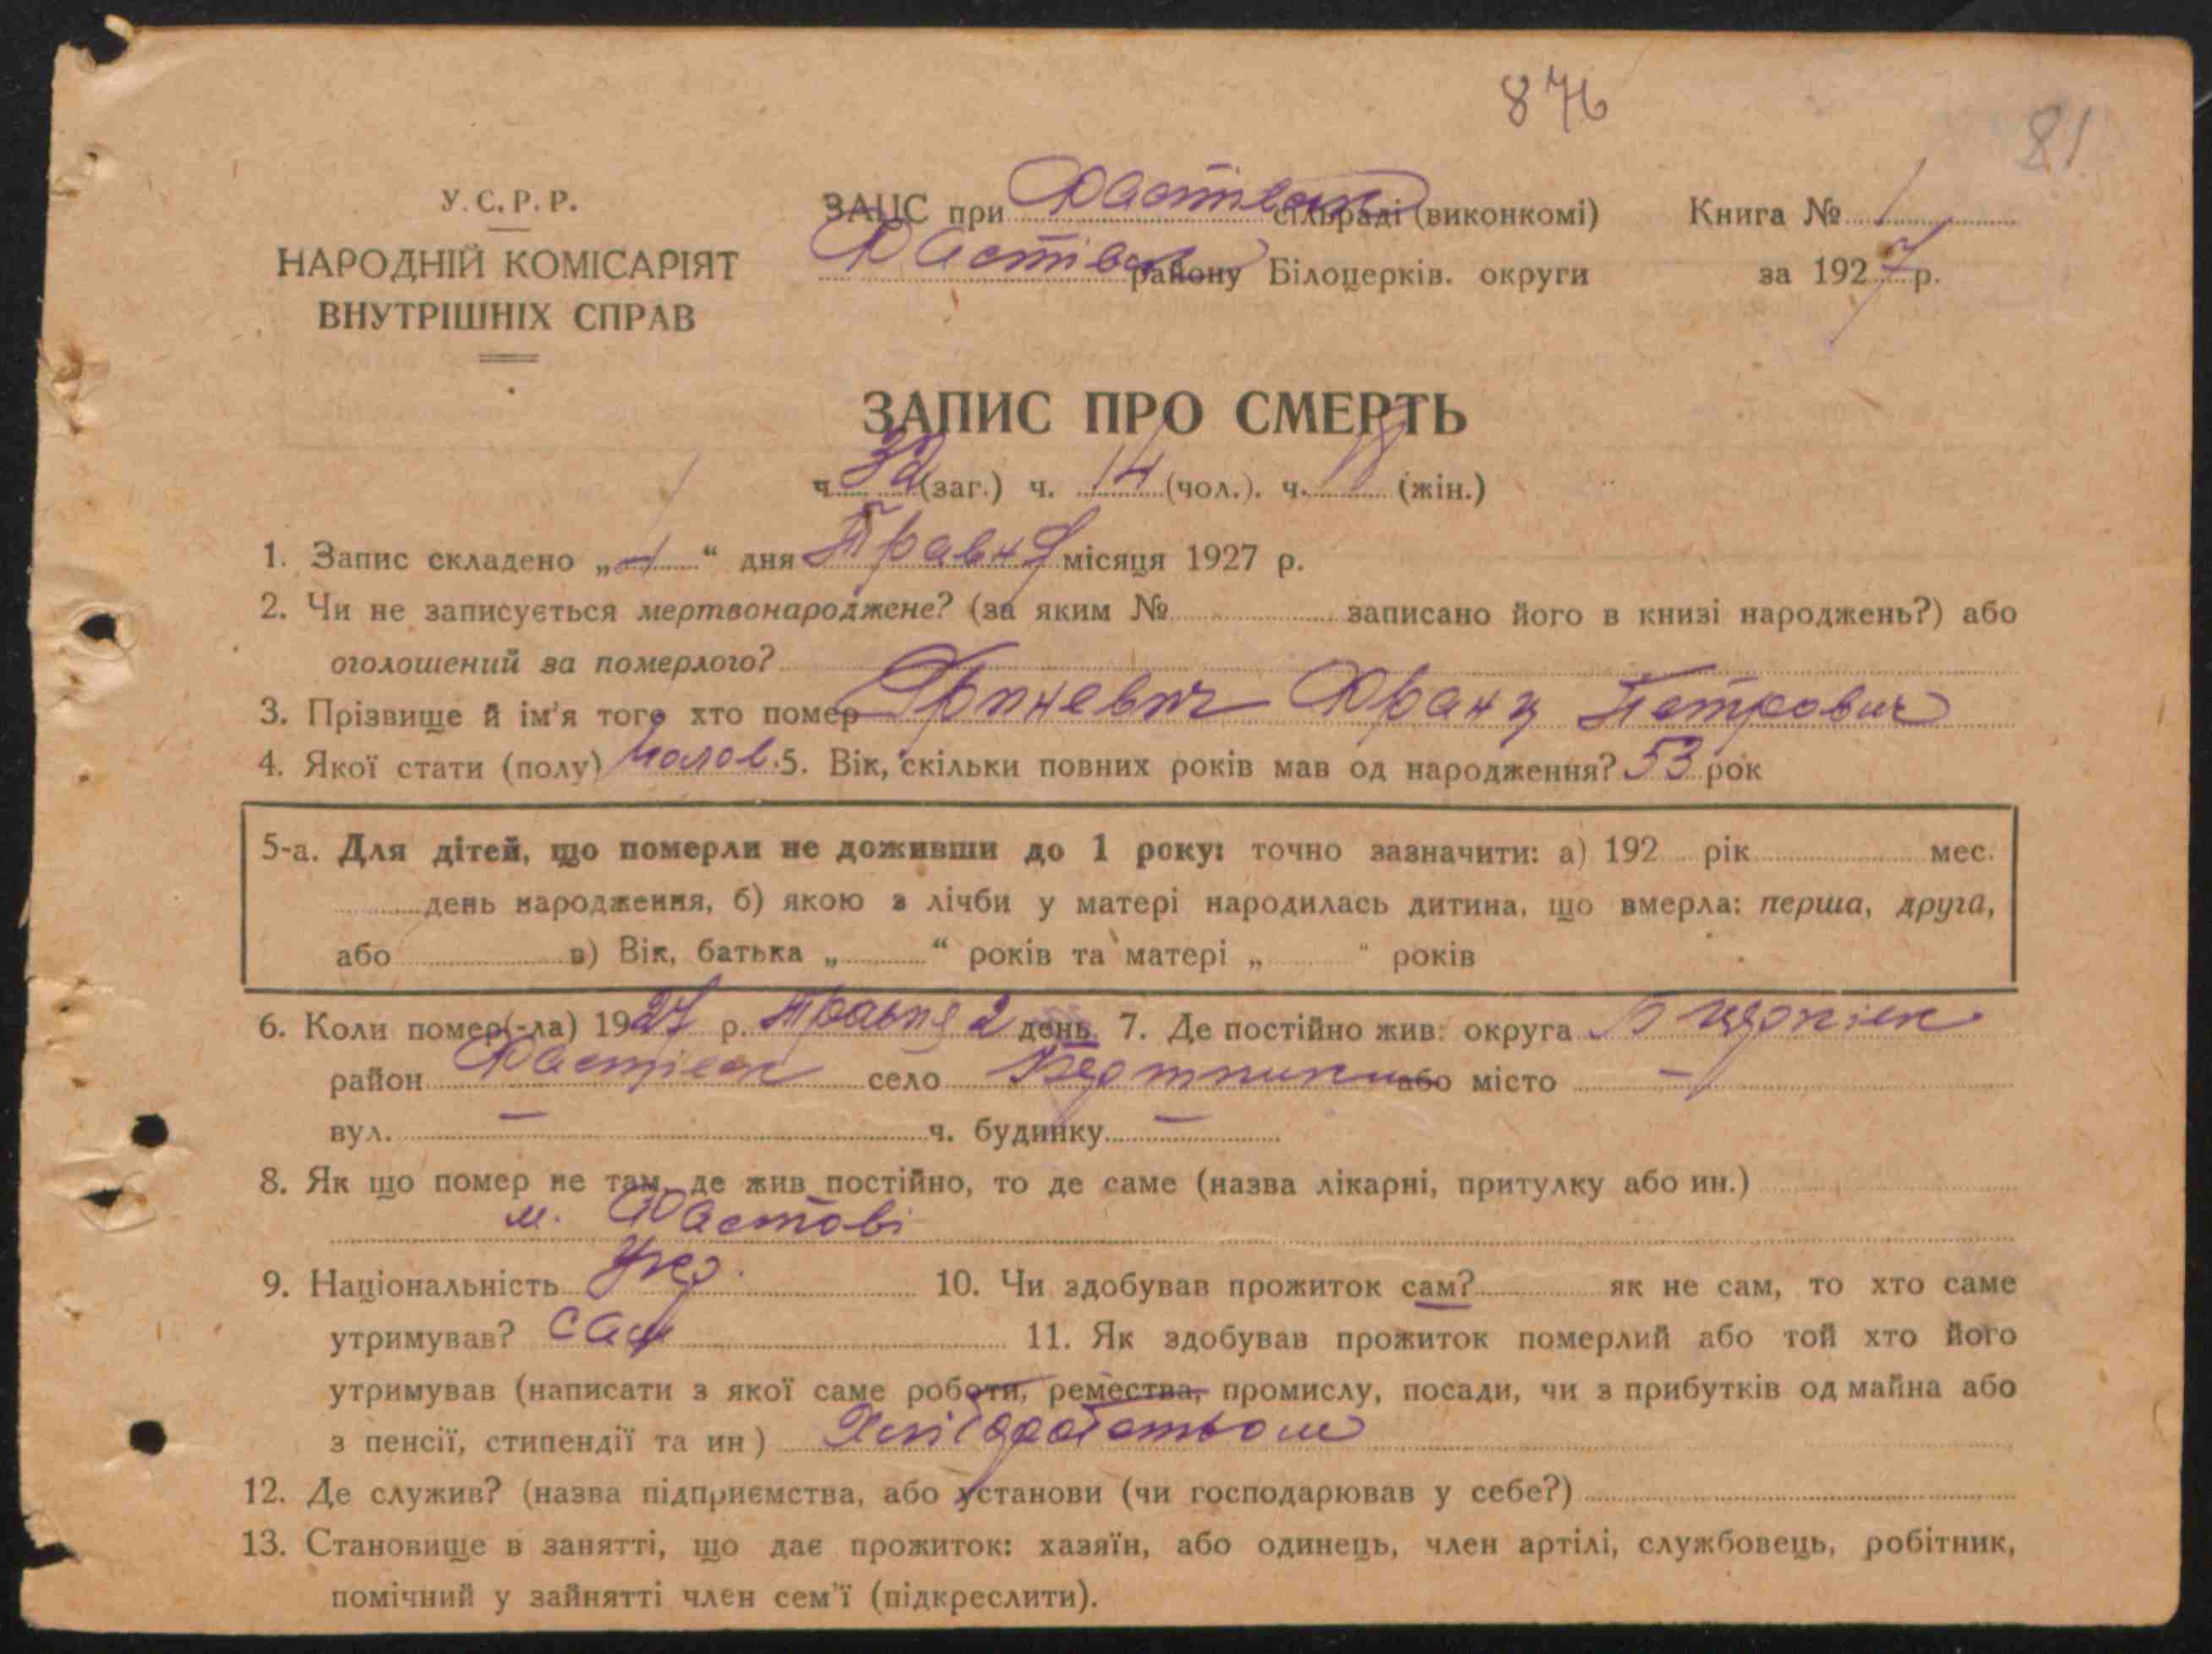 876
81
У. С. Р. Р.
НАРОДНІЙ КОМІСАРІЯТ
ВНУТРІШНІХ СПРАВ
ЗАЦС при Фастівськ сільраді (виконкомі)
Фастівськ району Білоцерків. округи
Книга № 1
за 1927 р.
ЗАПИС ПРО СМЕРТЬ
ч. 32 (заг.) ч. 14 (чол.). ч. 18 (жін.)
1. Запис складено „ “ дня Травня місяця 1927 р.
2. Чи не записується мертвонароджене? (за яким № записано його в книзі народжень?) або
оголошений за померлого?
3. Прізвище й ім'я того хто помер Гриневич Франц Петрович
4. Якої стати (полу) Чолов. 5. Вік, скільки повних років мав од народження? 53 рок
5-а. Для дітей, що померли не доживши до 1 року: точно зазначити: а) 192 рік мес.
день народження, б) якою з лічби у матері народилась дитина, що вмерла: перша, друга,
або в) Вік, батька „ “ років та матері „ “ років
6. Коли помер(-ла) 1927 р. Травня 2 день 7. Де постійно жив: округа Б церківськ
район Фастівськ село або місто —
вул. — ч. будинку —
8. Як що помер не там, де жив постійно, то де саме (назва лікарні, притулку або ин.)
м. Фастові
9. Національність Укр. 10. Чи здобував прожиток сам? як не сам, то хто саме
утримував? сам 11. Як здобував прожиток померлий або той хто його
утримував (написати з якої саме роботи, ремества, промислу, посади, чи з прибутків од майна або
з пенсії, стипендії та ин) Хліборобством
12. Де служив? (назва підприємства, або установи (чи господарював у себе?)
13. Становище в занятті, що дає прожиток: хазяїн, або одинець, член артілі, службовець, робітник,
помічний у зайнятті член сем'ї (підкреслити).